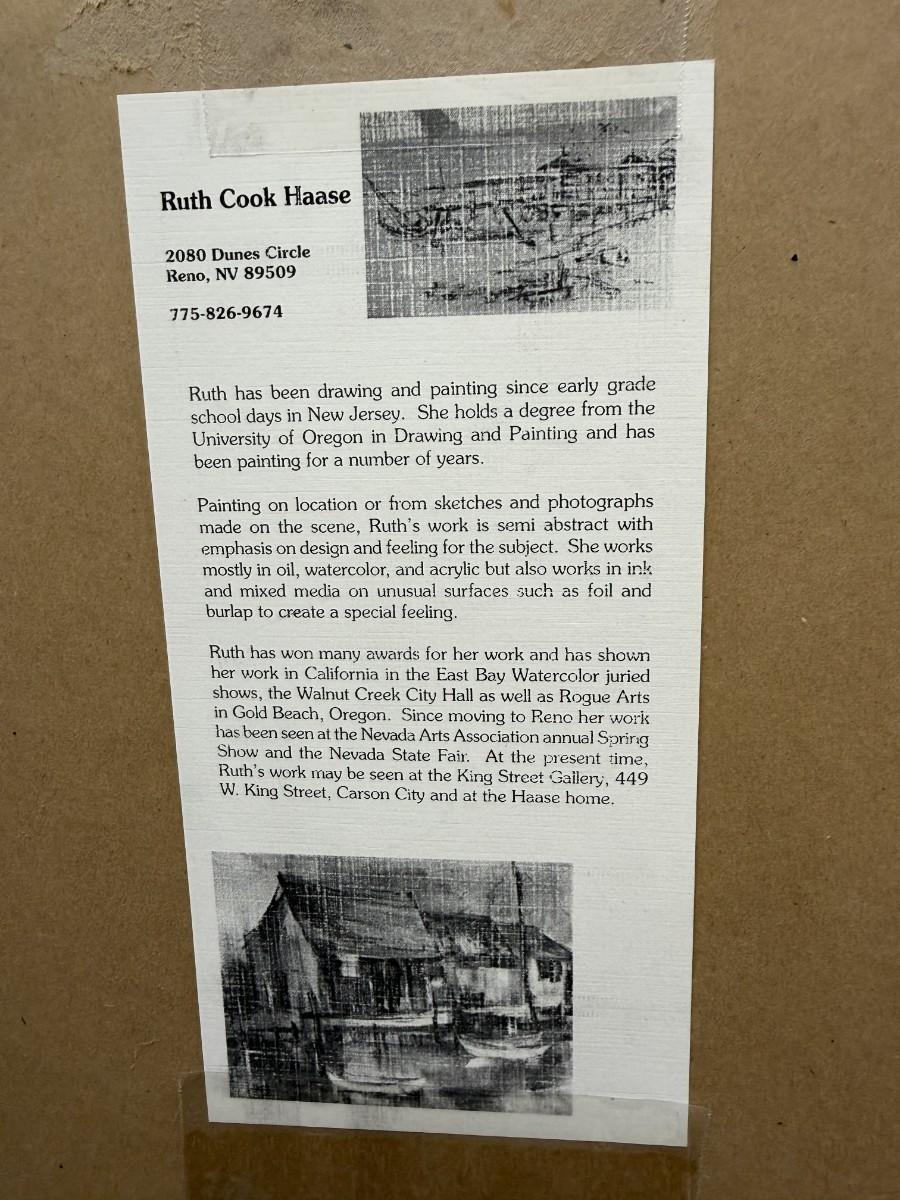 Ruth Cook Haase
2080 Dunes Circle
Reno, NV 89509
775-826-9674
Ruth has been drawing and painting since early grade
school days in New Jersey. She holds a degree from the
University of Oregon in Drawing and Painting and has
been painting for a number of years.
Painting on location or from sketches and photographs
made on the scene, Ruth's work is semi abstract with
emphasis on design and feeling for the subject. She works
mostly in oil, watercolor, and acrylic but also works in ink
and mixed media on unusual surfaces such as foil and
burlap to create a special feeling.
Ruth has won many awards for her work and has shown
her work in California in the East Bay Watercolor juried
shows, the Walnut Creek City Hall as well as Rogue Arts
in Gold Beach, Oregon. Since moving to Reno her work
has been seen at the Nevada Arts Association annual Spring
Show and the Nevada State Fair. At the present time,
Ruth's work may be seen at the King Street Gallery, 449
W. King Street, Carson City and at the Haase home.